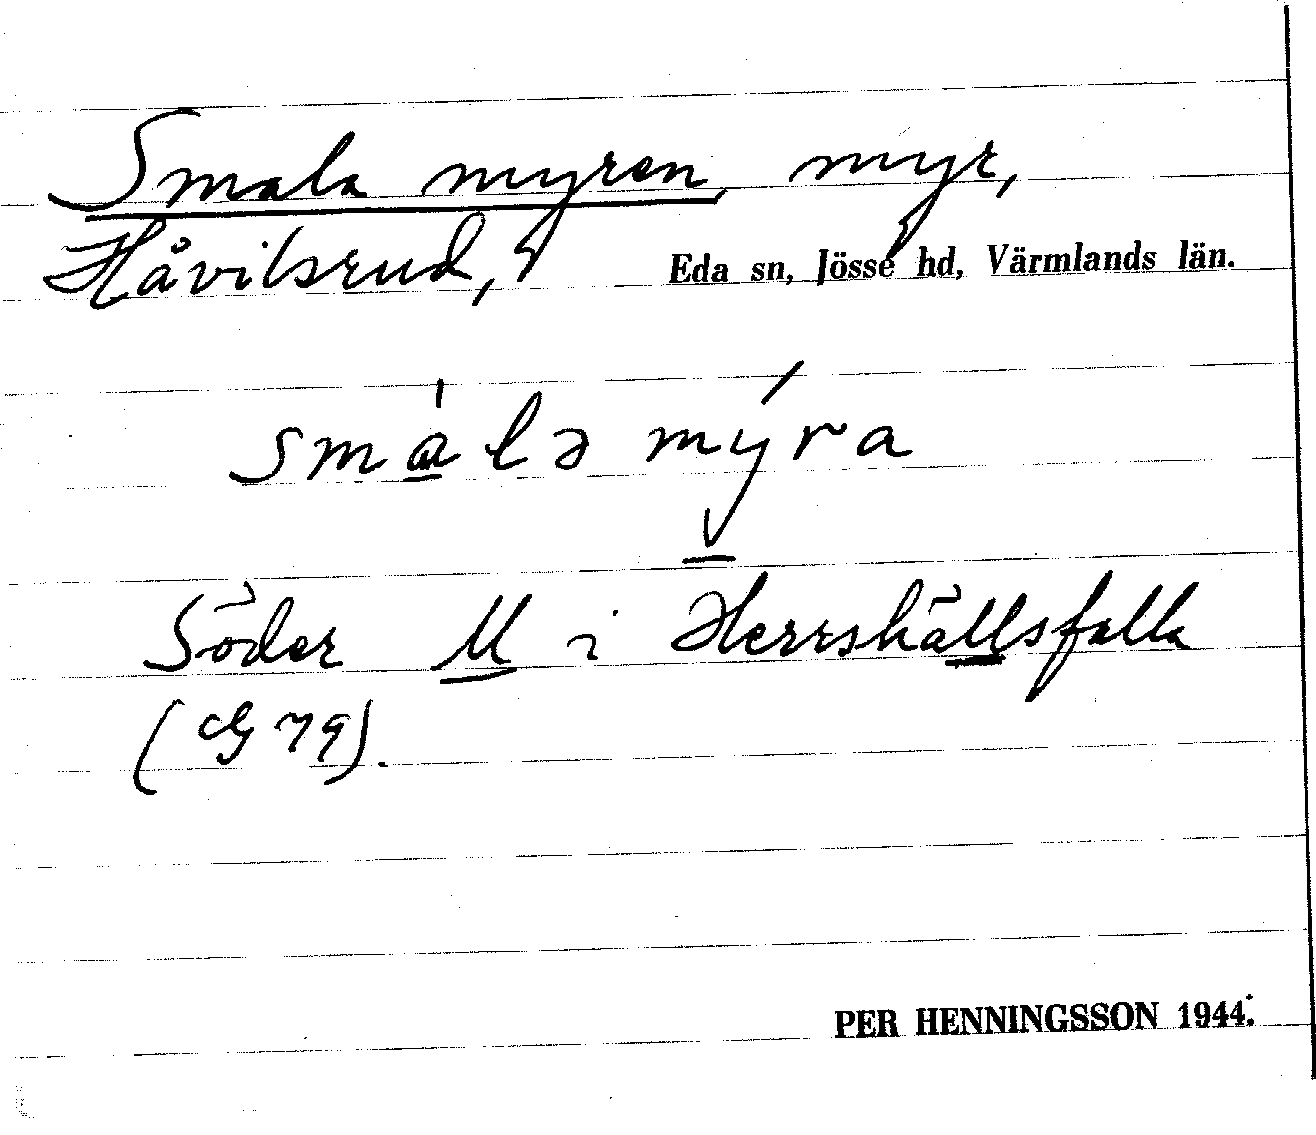 Smala myren, myr,
Håvilsrud, Eda sn, Jösse hd, Värmlands län.
smàlə mýra
Söder M i Herrshällsfalla
(G 79).
PER HENNINGSSON 1944.